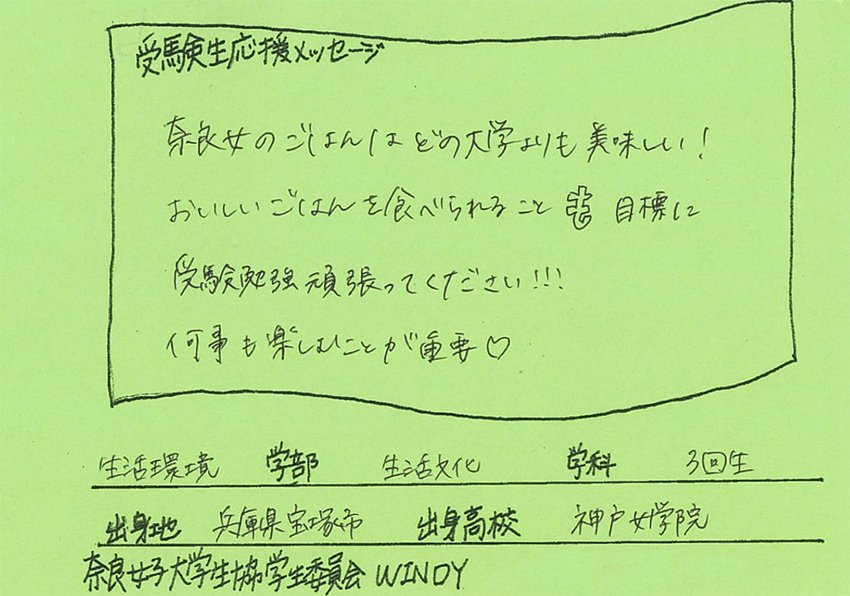 受験生応援メッセージ
奈良女のごはんはどの大学よりも美味しい!
おいしいごはんを食べられること 目標に
受験勉強頑張ってください!!!
何事も楽しむことが重要♡
生活環境 学部 生活文化 学科 3回生
出身地 兵庫県宝塚市 出身高校 神戸女学院
奈良女子大学生協学生委員会 WINDY